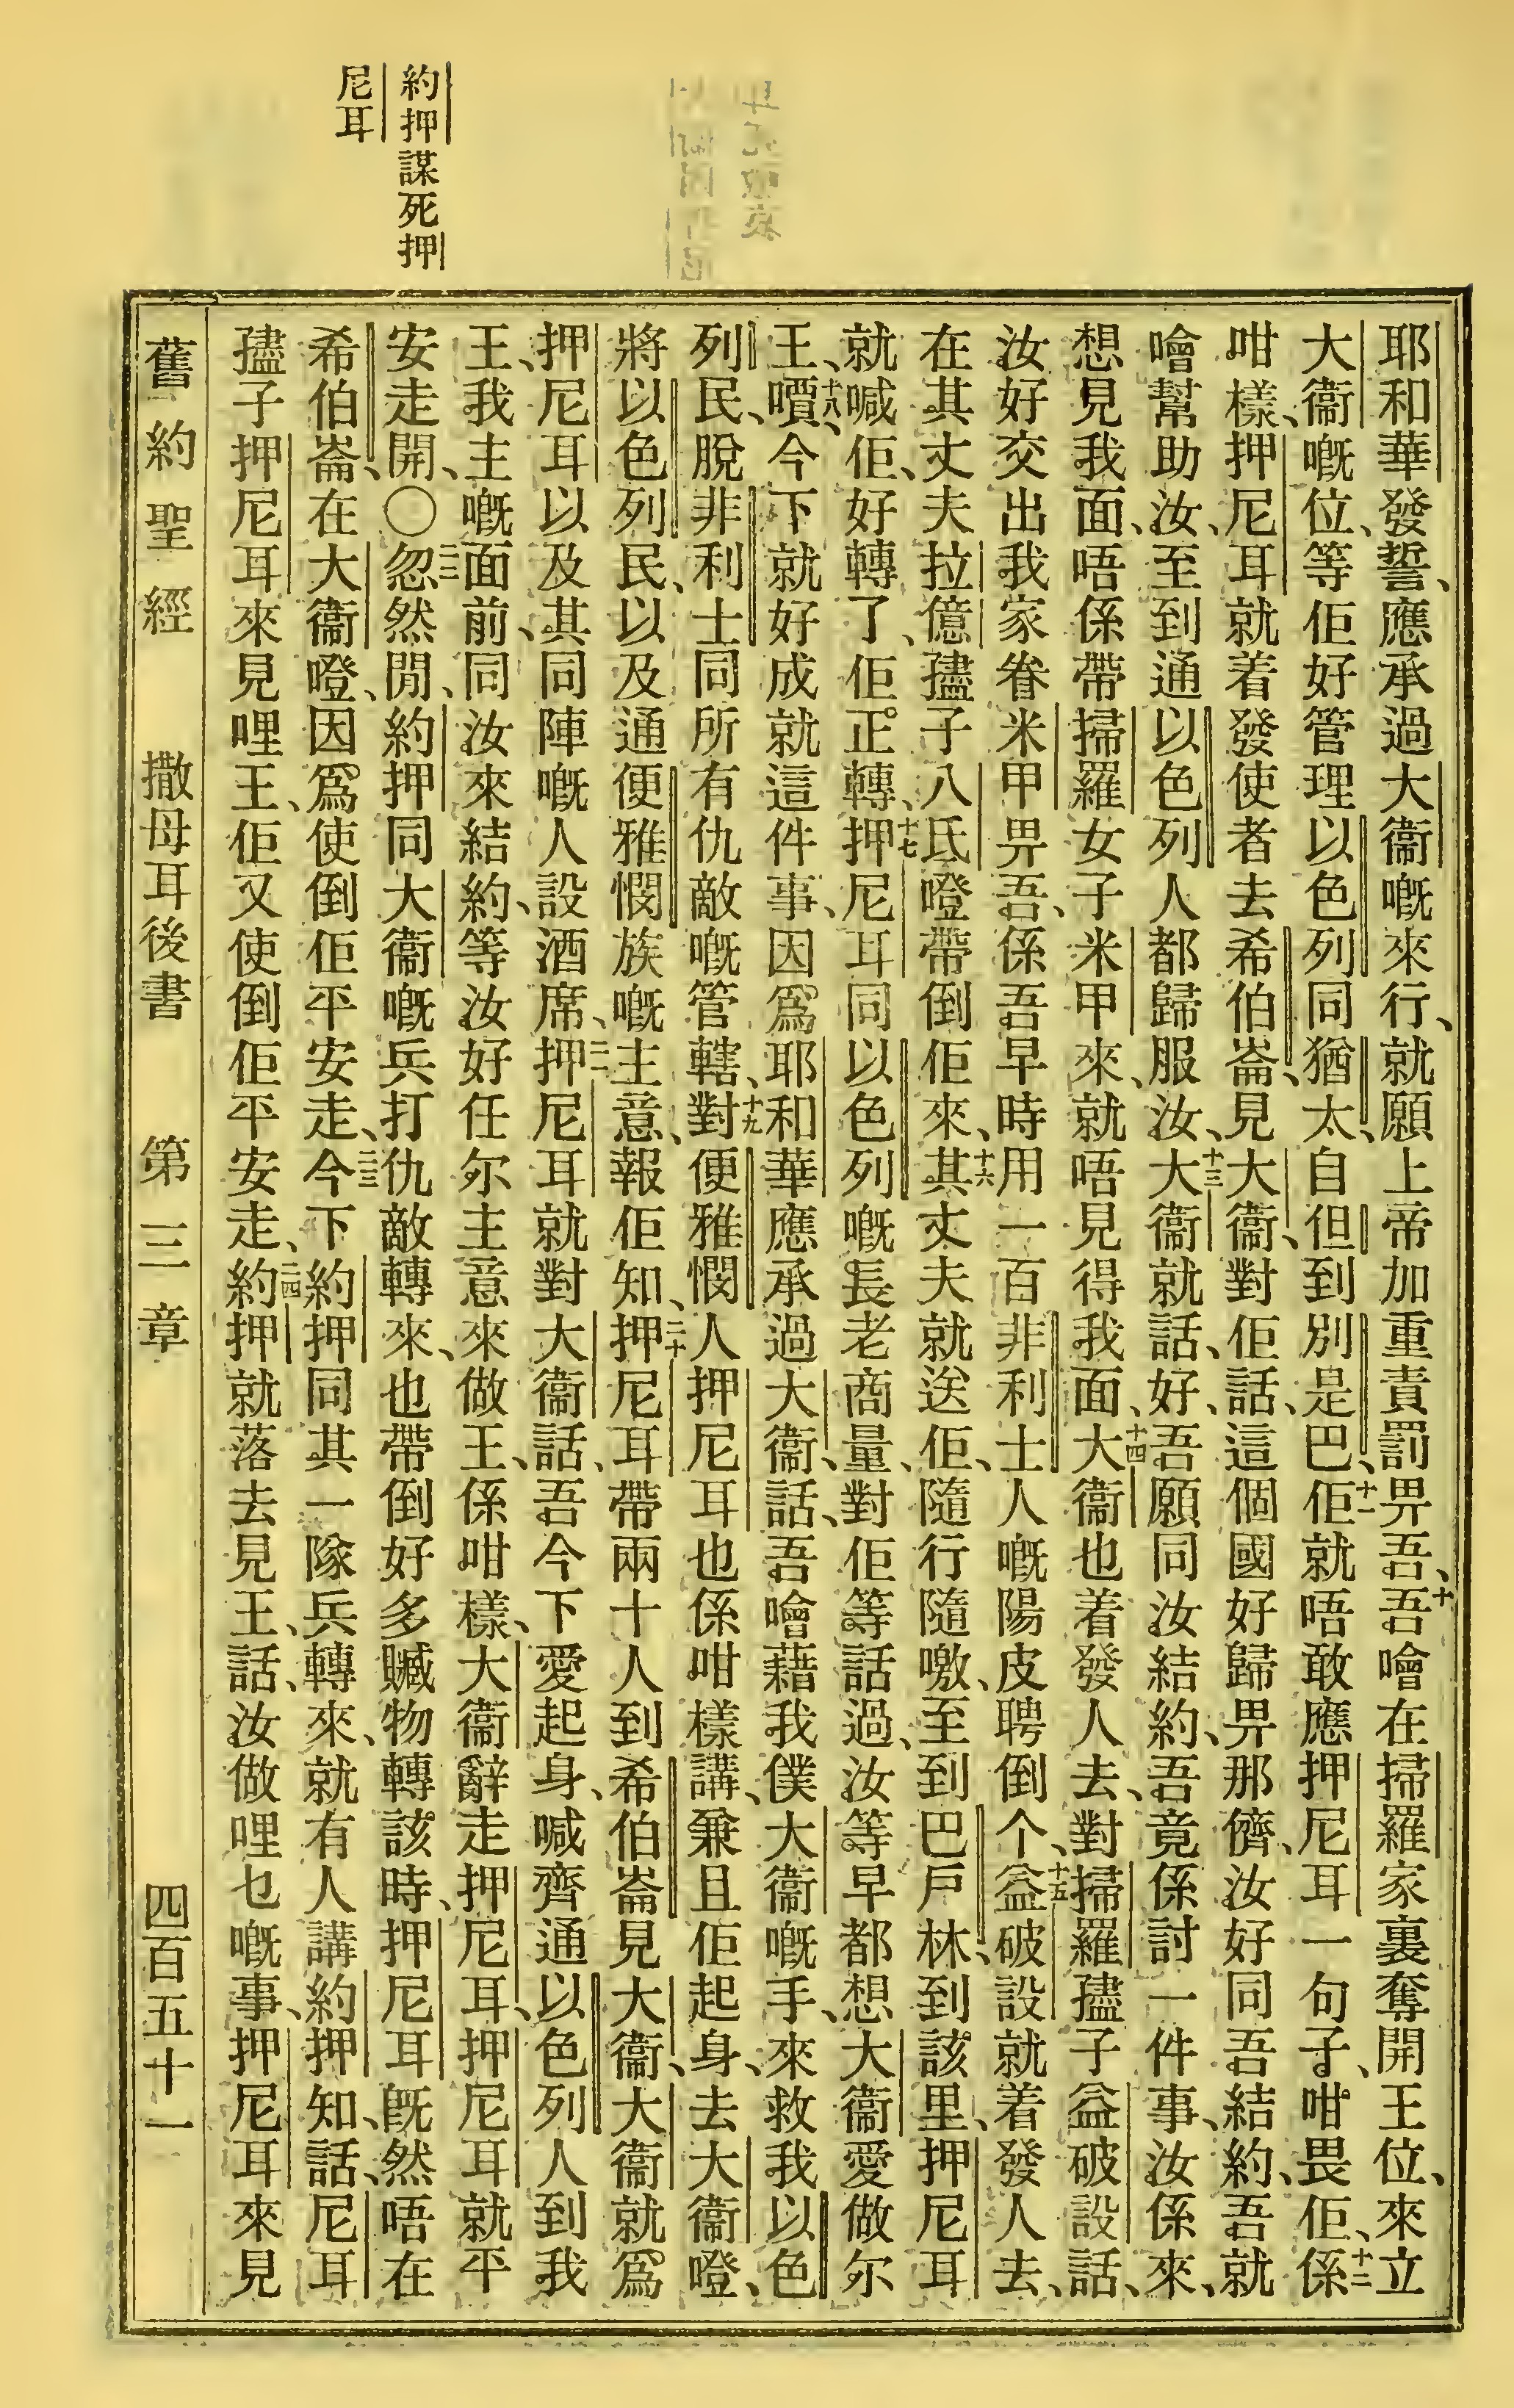 約押謀死押
尼耳
耶和華發誓、應承過大衞嘅來行、就願上帝加重責罰畀吾、十吾噲在掃羅家裏奪開王位、來立
大衞嘅位、等佢好管理以色列同猶太、自但到別是巴、十一佢就唔敢應押尼耳一句子、咁畏佢、十二係
咁樣、押尼耳就着發使者去希伯崙、見大衞、對佢話、這個國好歸畀那儕、汝好同吾結約、吾就
噲幫助汝、至到通以色列人都歸服汝、十三大衞就話、好、吾願同汝結約、吾竟係討一件事、汝係來、
想見我面、唔係帶掃羅女子米甲來、就唔見得我面、十四大衞也着發人去、對掃羅孻子益破設話、
汝好交出我家眷米甲畀吾、係吾早時用一百非利士人嘅陽皮聘倒个、十五益破設就着發人去、
在其丈夫拉億孻子八氏嶝帶倒佢來、十六其丈夫就送佢、隨行隨噭、至到巴戶林、到該里、押尼耳
就喊佢、好轉了、佢正轉、十七押尼耳同以色列嘅長老商量、對佢等話過、汝等早都想大衞愛做尔
王、十八嘪、今下就好成就這件事、因爲耶和華應承過大衞、話、吾噲藉我僕大衞嘅手、來救我以色
列民、脫非利士同所有仇敵嘅管轄、十九對便雅憫人押尼耳也係咁樣講、兼且佢起身、去大衞嶝、
將以色列民、以及通便雅憫族嘅主意、報佢知、二十押尼耳帶兩十人到希伯崙見大衞、大衞就爲
押尼耳以及其同陣嘅人設酒席、二一押尼耳就對大衞話、吾今下愛起身、喊齊通以色列人到我
王、我主嘅面前、同汝來結約、等汝好任尔主意來做王、係咁樣、大衞辭走押尼耳、押尼耳就平
安走開、〇二二忽然閒、約押同大衞嘅兵打仇敵轉來、也帶倒好多贓物轉該時、押尼耳既然唔在
希伯崙、在大衞嶝、因爲使倒佢平安走、二三今下約押同其一隊兵轉來、就有人講約押知、話、尼耳
孻子押尼耳來見哩王、佢又使倒佢平安走、二四約押就落去見王、話、汝做哩乜嘅事、押尼耳來見
舊約聖經　撒母耳後書　第三章　四百五十一